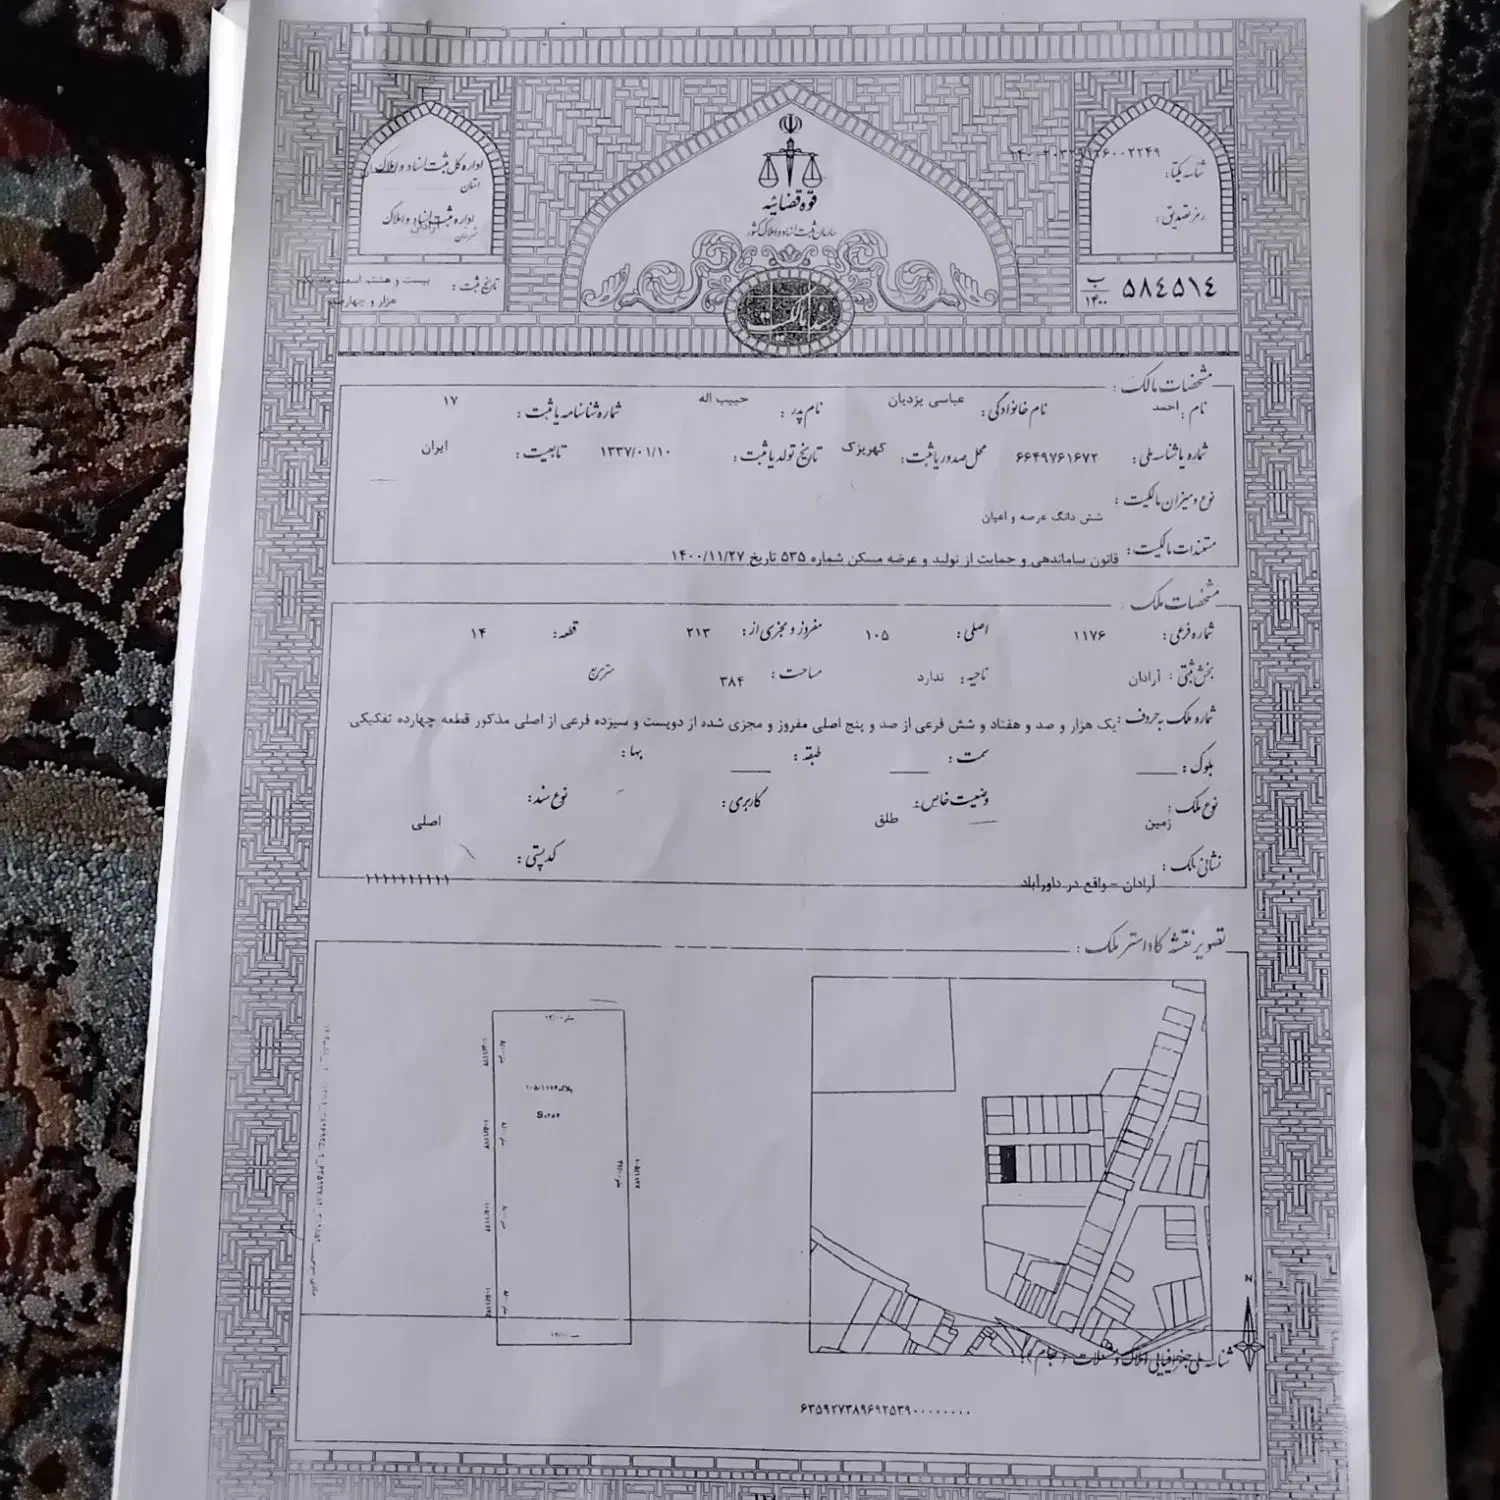 قوه قضائیه
سازمان ثبت اسناد و املاک کشور
شناسه یکتا:
رمز تصدیق:
اداره کل ثبت اسناد و املاک
استان
اداره ثبت اسناد و املاک
شهرستان آرادان
۵۸۴۵۱۴ ب ۱۴۰۰
تاریخ ثبت: بیست و هشتم اسفند ماه
هزار و چهارصد
سند مالکیت
مشخصات مالک:
نام: احمد نام خانوادگی: عباسی یزدیان نام پدر: حبیب اله شماره شناسنامه یا ثبت: ۱۷
شماره یا شناسه ملی: ۶۶۴۹۷۶۱۶۷۲ محل صدور یا ثبت: کهریزک تاریخ تولد یا ثبت: ۱۳۳۷/۰۱/۱۰ تابعیت: ایران
نوع و میزان مالکیت:
شش دانگ عرصه و اعیان
مستندات مالکیت: قانون ساماندهی و حمایت از تولید و عرضه مسکن شماره ۵۳۵ تاریخ ۱۴۰۰/۱۱/۲۷
مشخصات ملک:
شماره فرعی: ۱۱۷۶ اصلی: ۱۰۵ مفروز و مجزی از: ۲۱۳ قطعه: ۱۴
بخش ثبتی: آرادان ناحیه: ندارد مساحت: ۳۸۴ مترمربع
شماره ملک به حروف: یک هزار و صد و هفتاد و شش فرعی از صد و پنج اصلی مفروز و مجزی شده از دویست و سیزده فرعی از اصلی مذکور قطعه چهارده تفکیکی
بلوک: سمت: طبقه: بها:
نوع ملک: زمین وضعیت خاص: طلق کاربری: نوع سند: اصلی
نشانی ملک: آرادان - واقع در داورآباد کد پستی: ۱۱۱۱۱۱۱۱۱۱
تصویر نقشه کاداستر ملک:
پلاک ۱۰۵/۱۱۷۶
S=۳۸۴
N
شناسه ملی جغرافیایی املاک و مستغلات (جام):
۶۳۵۹۲۷۳۸۹۶۹۲۵۳۹۰۰۰۰۰۰۰۰